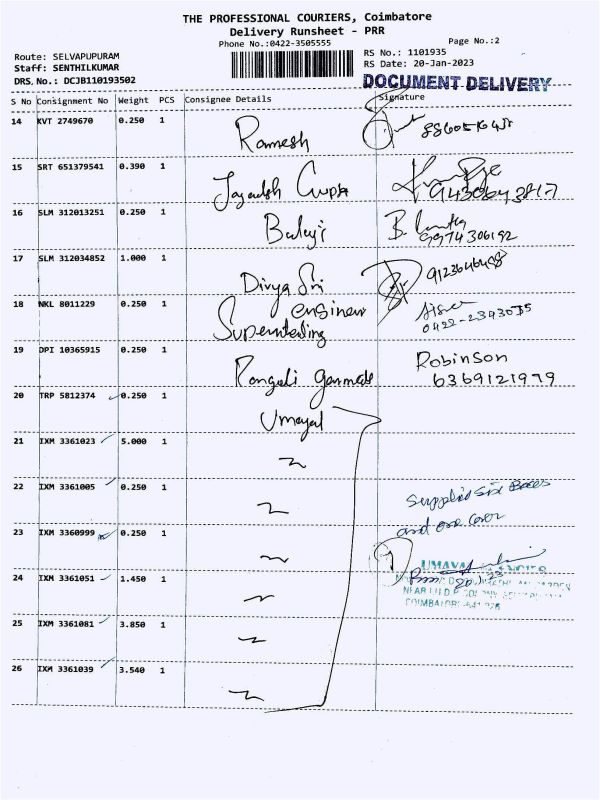 THE PROFESSIONAL COURIERS, Coimbatore
Delivery Runsheet - PRR
Phone No.:0422-3505555
Page No.:2
Route: SELVAPUPURAM
Staff: SENTHILKUMAR
DRS.No.: DCJB110193502
RS No.: 1101935
RS Date: 20-Jan-2023
DOCUMENT DELIVERY
S No Consignment No Weight PCS Consignee Details Signature
14 KVT 2749670 0.250 1 Ramesh
15 SRT 651379541 0.390 1 Jagadsh Gupta 9430643817
16 SLM 312013251 0.250 1 Balaji B. 9974306192
17 SLM 312034852 1.000 1 Divya Sri 9123646488
18 NKL 8011229 0.250 1 Superntending engineer 0422-2343035
19 DPI 10365915 0.250 1 garments Robinson
6369121979
20 TRP 5812374 0.250 1 Umayal
21 IXM 3361023 5.000 1
22 IXM 3361005 0.250 1
Supplied Six Boxes
and one Cover
23 IXM 3360999 0.250 1
UMAYAL
24 IXM 3361051 1.450 1
COIMBATORE-641 026
25 IXM 3361081 3.850 1
26 IXM 3361039 3.540 1